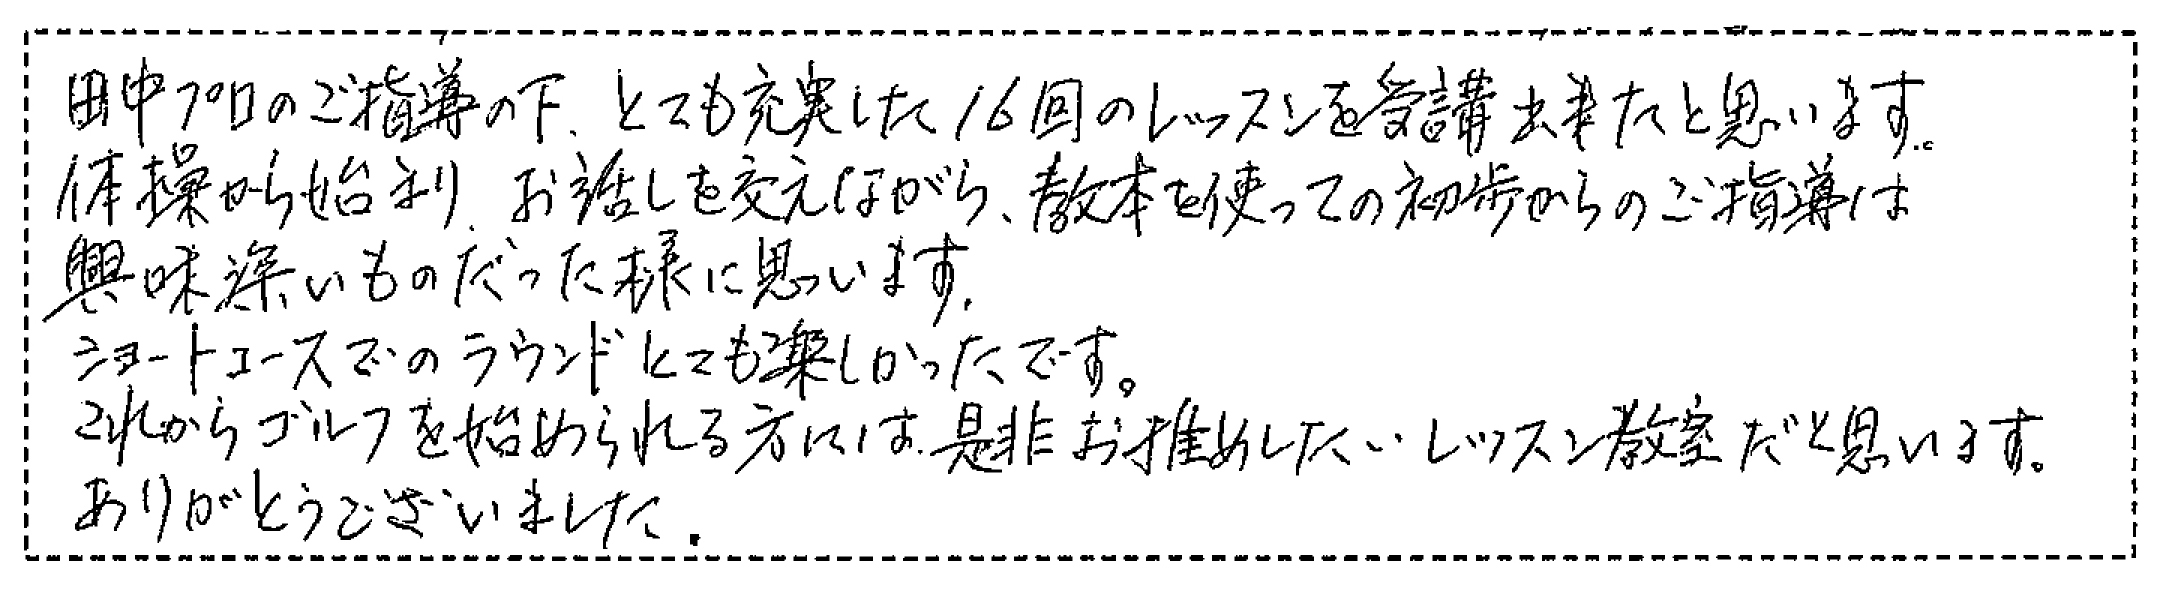 田中プロのご指導の下、とても充実した16回のレッスンを受講出来たと思います。
体操から始まり、お話しを交えながら、教本を使っての初歩からのご指導は
興味深いものだった様に思います。
ショートコースでのラウンドとても楽しかったです。
これからゴルフを始められる方には、是非お推めしたいレッスン教室だと思います。
ありがとうございました。